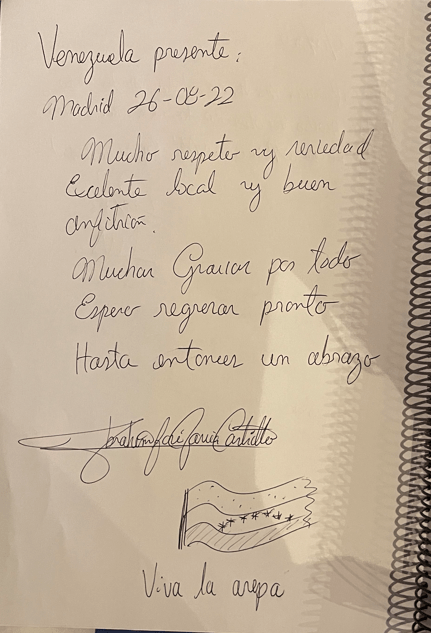 Venezuela presente:
Madrid 26-08-22
Mucho respeto y seriedad
Excelente local y buen
anfitrión.
Muchas Gracias por todo
Espero regresar pronto
Hasta entonces un abrazo
Castillo
Viva la arepa